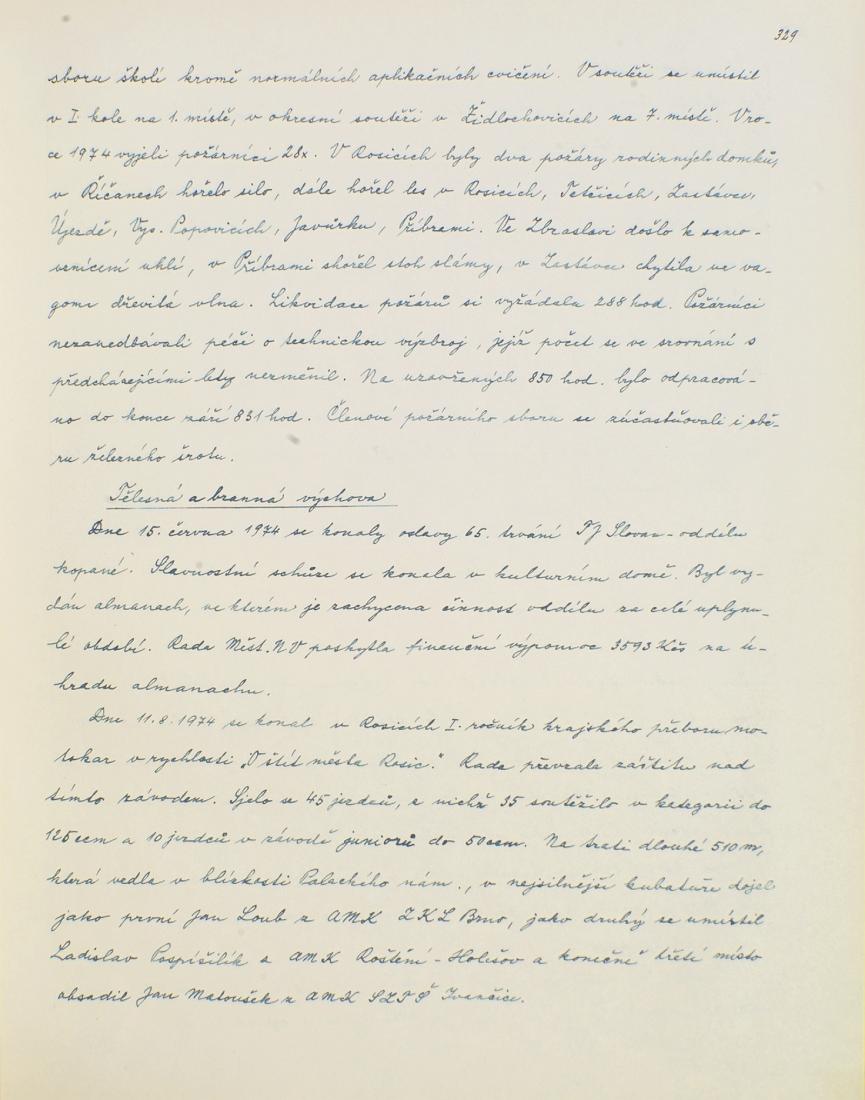 329
sboru školí kromě normálních aplikačních cvičení. V soutěži se umístil
v I. kole na 1. místě, v okresní soutěži v Židlochovicích na 7. místě. V ro-
ce 1974 vyjeli požárníci 28x. V Rosicích byly dva požáry rodinných domků,
v Říčanech hořelo silo, dále hořel les v Rosicích, Tetčicích, Zastávce,
Újezdě, Vys. Popovicích, Javůrku, Příbrami. Ve Zbraslavi došlo k samo-
vznícení uhlí, v Příbrami shořel stoh slámy, v Zastávce chytila ve va-
goně dřevitá vlna. Likvidace požárů si vyžádala 288 hod. Požárníci
nezanedbávali péči o technickou výzbroj, jejíž počet se ve srovnání s
předcházejícími lety nezměnil. Na uzavřených 850 hod. bylo odpracová-
no do konce září 831 hod. Členové požárního sboru se zúčastňovali i sbě-
ru železného šrotu.
Tělesná a branná výchova
Dne 15. června 1974 se konaly oslavy 65. trvání TJ Slovan - oddílu
kopané. Slavnostní schůze se konala v kulturním domě. Byl vy-
dán almanach, ve kterém je zachycena činnost oddílu za celé uplynu-
lé období. Rada Měst. NV poskytla finanční výpomoc 3593 Kčs na ú-
hradu almanachu.
Dne 11. 8. 1974 se konal v Rosicích I. ročník krajského přeboru mo-
tokár v rychlosti „O štít města Rosic." Rada převzala záštitu nad
tímto závodem. Sjelo se 45 jezdců, z nichž 35 soutěžilo v kategorii do
125 ccm a 10 jezdců v závodě juniorů do 50 ccm. Na trati dlouhé 510 m,
která vedla v blízkosti Palackého nám., v nejsilnější kubatuře dojel
jako první Jan Loub z AMK ZKL Brno, jako druhý se umístil
Ladislav Pospíšilík z AMK Roštění - Holešov a konečně třetí místo
obsadil Jan Matoušek z AMK SZTŠ Ivančice.